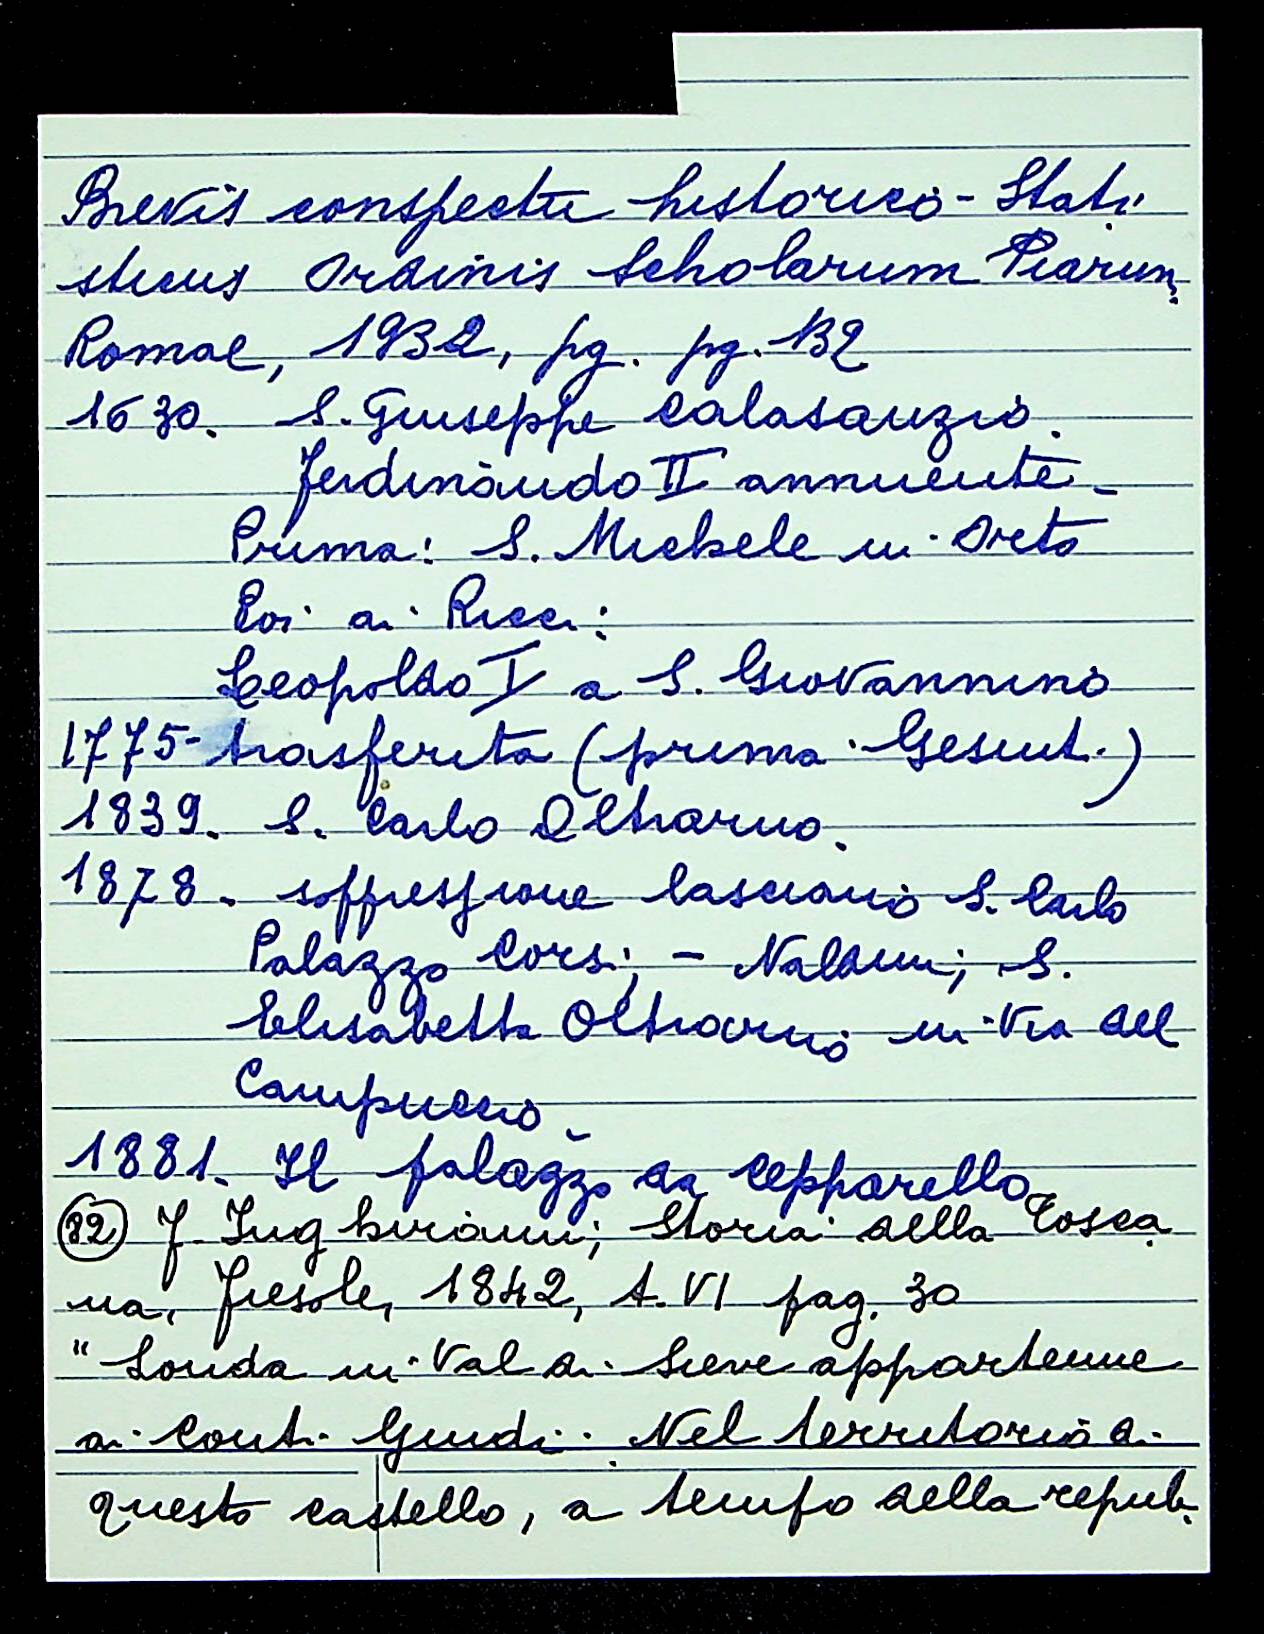 Brevis conspectu historico-Stati
sticus Ordinis Scholarum Piarum,
Romae, 1932, pg. pg. 132
1630. S. Giuseppe Calasanzio.
Ferdinando II annuente -
Prima: S. Michele in Orto
Poi ai Ricci:
Leopoldo I a S. Giovannino
1775- trasferita (prima Gesuit.)
1839. S. Carlo Oltrarno.
1878. soppressione lasciano S. Carlo
Palazzo Corsi, - Naldini; S.
Elisabetta Oltrarno in Via del
Campuccio -
1881. Il palazzo da Cepparello
(82) F. Inghirami; Storia della Tosca
na, Fiesole, 1842, t. VI pag. 30
"Londa in Val di Sieve appartenne
ai Conti Guidi. Nel territorio di
questo castello, a tempo della repub.